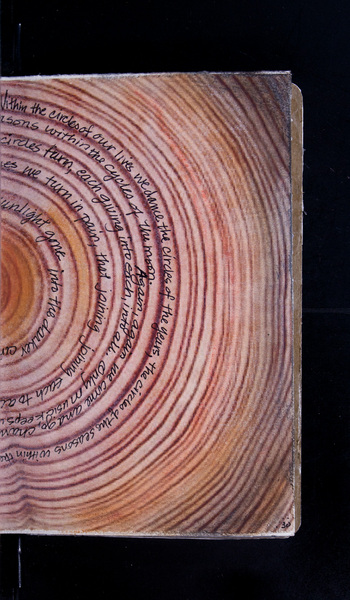 Within the circles of our lives we dance the circles of the years, the circles of the seasons within the
cycles of the moon. Again, again we come and go, chan
circles turn, each giving into each, into all. Only music keeps
we turn in pain, that joining joining each to a
sunlight gone into the darker
30